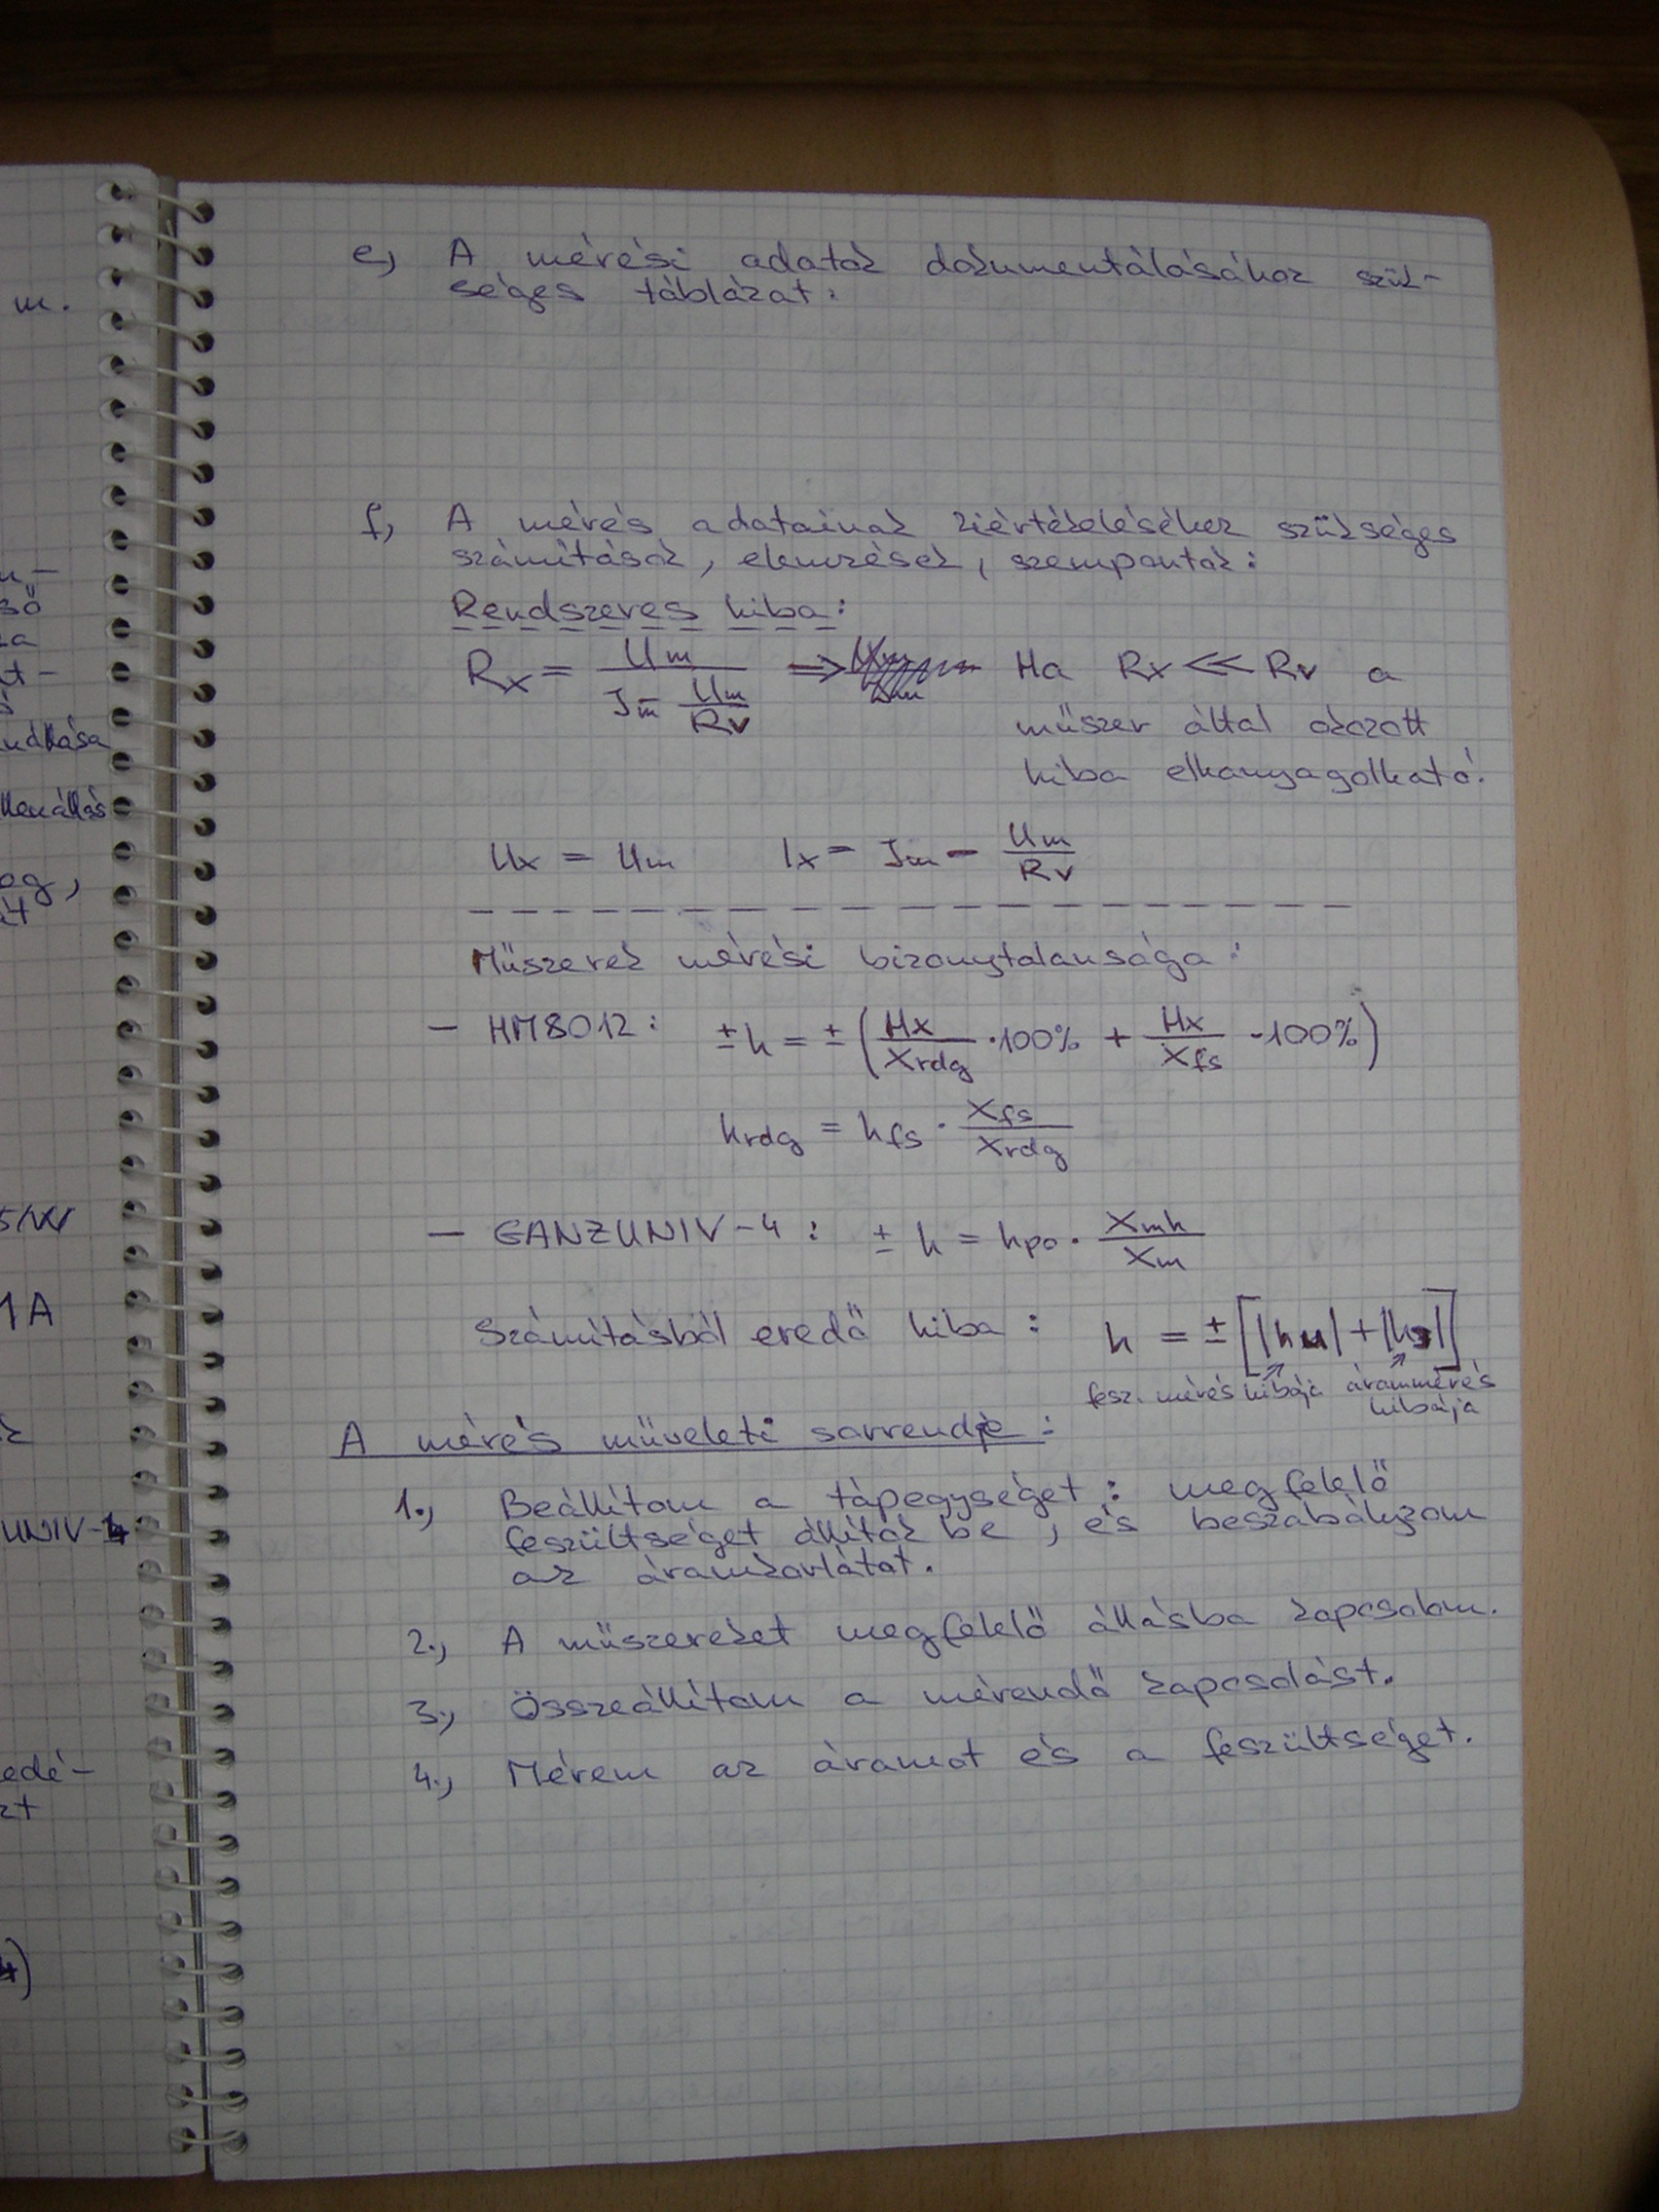 e, A mérési adatok dokumentálásához szük-
séges táblázat:
f, A mérés adatainak kiértékeléséhez szükséges
számítások, elemzések, szempontok:
Rendszeres hiba:
Rx = Um / (Im - Um/Rv) ⇒ Ha Rx ≪ Rv a
műszer által okozott
hiba elhanyagolható.
Ux = Um Ix = Im - Um/Rv
Műszerek mérési bizonytalansága:
- HM8012: ±h = ±(Hx/Xrdg ·100% + Hx/Xfs ·100%)
hrdg = hfs · Xfs/Xrdg
- GANZUNIV-4: ± h = hpo · Xmh/Xm
Számításból eredő hiba: h = ±[|hu|+|hI|]
fesz. mérés hibája árammérés
hibája
A mérés műveleti sorrendje:
1., Beállítom a tápegységet: megfelelő
feszültséget állítok be, és beszabályzom
az áramkorlátot.
2., A műszereket megfelelő állásba kapcsolom.
3., Összeállítom a mérendő kapcsolást.
4., Mérem az áramot és a feszültséget.
m.
ső
za
t-
nállása
llenállás
og,
át
1A
UNIV-4
edé-
zt
4)